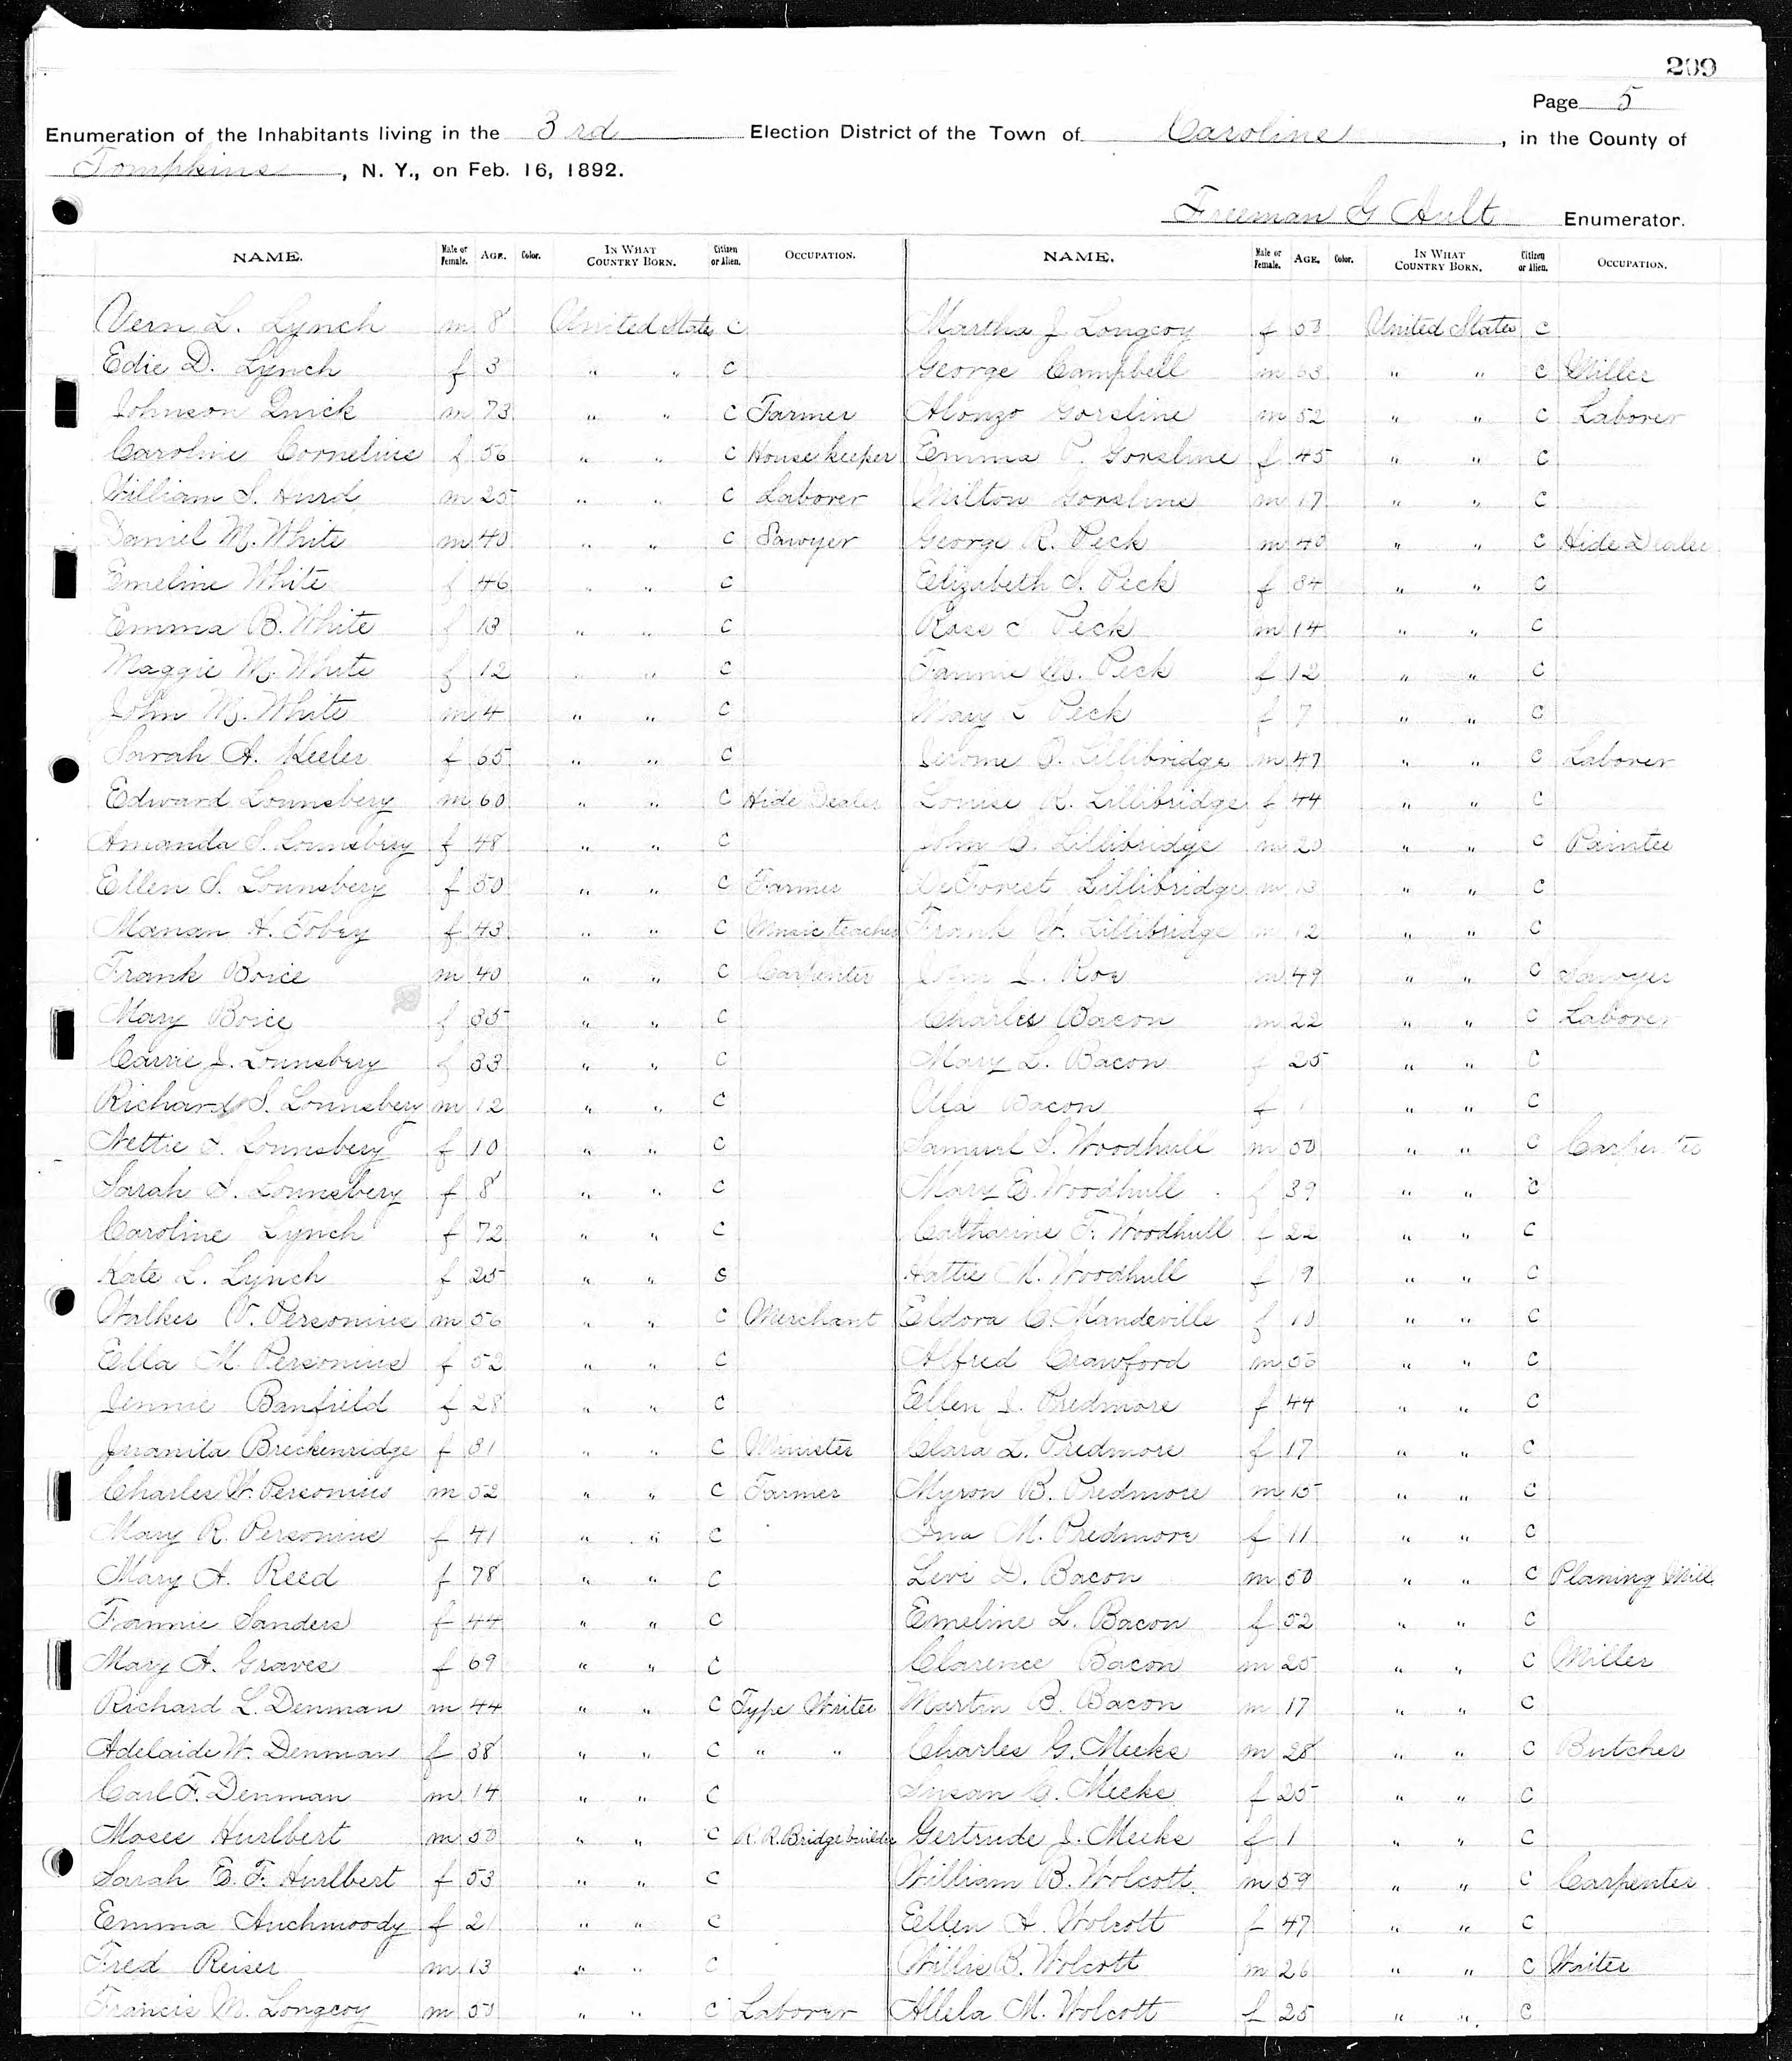 209
Page 5
Enumeration of the Inhabitants living in the 3rd Election District of the Town of Caroline, in the County of
Tompkins, N. Y., on Feb. 16, 1892.
Freeman G Ault Enumerator.
NAME. Male or Female. AGE. Color. IN WHAT COUNTRY BORN. Citizen or Alien. OCCUPATION. NAME. Male or Female. AGE. Color. IN WHAT COUNTRY BORN. Citizen or Alien. OCCUPATION.
Vern L. Lynch m 8 United States C
Edie D. Lynch f 3 " " C
Johnson Quick m 73 " " C Farmer
Caroline Cornelius f 56 " " C House keeper
William S. Hurd m 25 " " C Laborer
Daniel M. White m 40 " " C Sawyer
Emeline White f 46 " " C
Emma B. White f 13 " " C
Maggie M. White f 12 " " C
John M. White m 4 " " C
Sarah A. Keeler f 65 " " C
Edward Lounsbery m 60 " " C Hide Dealer
Amanda S. Lounsbery f 48 " " C
Ellen S. Lounsbery f 50 " " C Farmer
H. Tobey f 43 " " C Music teacher
Frank Boice m 40 " " C Carpenter
Mary Boice f 35 " " C
Carrie J. Lounsbery f 33 " " C
Richard S. Lounsbery m 12 " " C
Nettie Lounsbery f 10 " " C
Sarah Lounsbery f 8 " " C
Caroline Lynch f 72 " " C
Kate L. Lynch f 25 " " C
Walker V. Personius m 56 " " C Merchant
Ella M. Personius f 52 " " C
Jennie Banfield f 28 " " C
Juanita Breckenridge f 31 " " C Minister
Charles W. Personius m 52 " " C Farmer
Mary R. Personius f 41 " " C
Mary A. Reed f 78 " " C
Fannie Sanders f 44 " " C
Mary A. Graves f 69 " " C
Richard L. Denman m 44 " " C Type Writer
Adelaide W. Denman f 38 " " C " "
Carl F. Denman m 14 " " C
Moses Hurlbert m 50 " " C R.R. Bridge builder
Sarah E. F. Hurlbert f 53 " " C
Emma Auchmoody f 21 " " C
Fred Reiser m 13 " " C
Francis M. Longcoy m 50 " " C Laborer
Martha J. Longcoy f 53 United States C
George Campbell m 63 " " C Miller
Alonzo Gorsline m 52 " " C Laborer
Emma P. Gorsline f 45 " " C
Milton Gorsline m 17 " " C
George R. Peck m 40 " " C Hide Dealer
Elizabeth S. Peck f 34 " " C
Ross S Peck m 14 " " C
Fannie M. Peck f 12 " " C
Mary L Peck f 7 " " C
Jerome Lillibridge m 47 " " C Laborer
Louise R. Lillibridge f 44 " " C
John Lillibridge m 20 " " C Painter
DeForest Lillibridge m 13 " " C
Frank W. Lillibridge m 12 " " C
Roe m 49 " " C Sawyer
Charles Bacon m 22 " " C Laborer
Mary L. Bacon f 25 " " C
Bacon f 1 " " C
Samuel S. Woodhull m 50 " " C Carpenter
Mary E. Woodhull f 39 " " C
Catharine F. Woodhull f 22 " " C
Hattie M. Woodhull f 19 " " C
Eldora C. Mandeville f " " C
Alfred Crawford m " " C
Ellen J. Predmore f 44 " " C
Clara L. Predmore f 17 " " C
Myron B. Predmore m 15 " " C
Ina M. Predmore f 11 " " C
Levi D. Bacon m 50 " " C Planing Mill
Emeline L. Bacon f 52 " " C
Clarence Bacon m 25 " " C Miller
Martin B. Bacon m 17 " " C
Charles G. Meeks m 28 " " C Butcher
Susan C. Meeks f 25 " " C
Gertrude J. Meeks f 1 " " C
William B. Wolcott m 59 " " C Carpenter
Ellen A. Wolcott f 47 " " C
Willis B. Wolcott m 26 " " C Writer
Allela M. Wolcott f 25 " " C